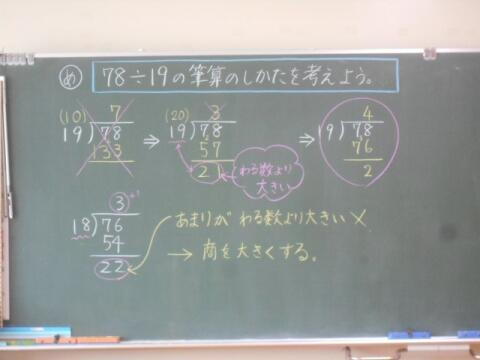 め 78÷19の筆算のしかたを考えよう。
(10) 7
19)78
133
⇒
(20) 3
19)78
57
21
わる数より
大きい
⇒
4
19)78
76
2
3+1
18)76
54
22
あまりが わる数より大きい ×
→ 商を大きくする。